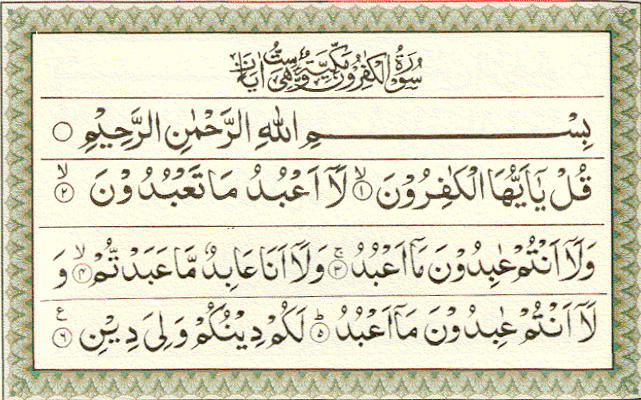 سُوْرَةُ الْكٰفِرُوْنَ مَكِّيَّةٌ وَّهِيَ سِتُّ اٰيَاتٍ
بِسْمِ اللهِ الرَّحْمٰنِ الرَّحِيْمِ
قُلْ يٰۤاَيُّهَا الْكٰفِرُوْنَ ۙ﴿۱﴾ لَاۤ اَعْبُدُ مَا تَعْبُدُوْنَ ۙ﴿۲﴾
وَلَاۤ اَنْتُمْ عٰبِدُوْنَ مَاۤ اَعْبُدُ ۚ﴿۳﴾ وَلَاۤ اَنَا عَابِدٌ مَّا عَبَدْتُّمْ ۙ﴿۴﴾ وَ
لَاۤ اَنْتُمْ عٰبِدُوْنَ مَاۤ اَعْبُدُ ؕ﴿۵﴾ لَكُمْ دِيْنُكُمْ وَلِيَ دِيْنِ ﴿۶﴾ ع